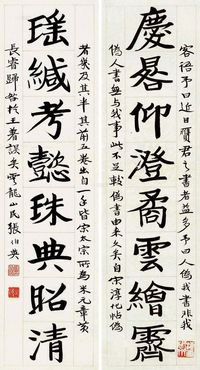 慶晷仰澄矞雲繪霽
客語予曰近日贋君之書者益多予曰人偽我書非我
偽人書無与我事此不足較偽書由來久矣自宋淳化帖偽
瑶緘考懿珠典昭清
者幾及其半其前五卷出自一手皆宋太宗所為米元章黃
長睿歸咎於王著誤矣雲龍山民張伯英